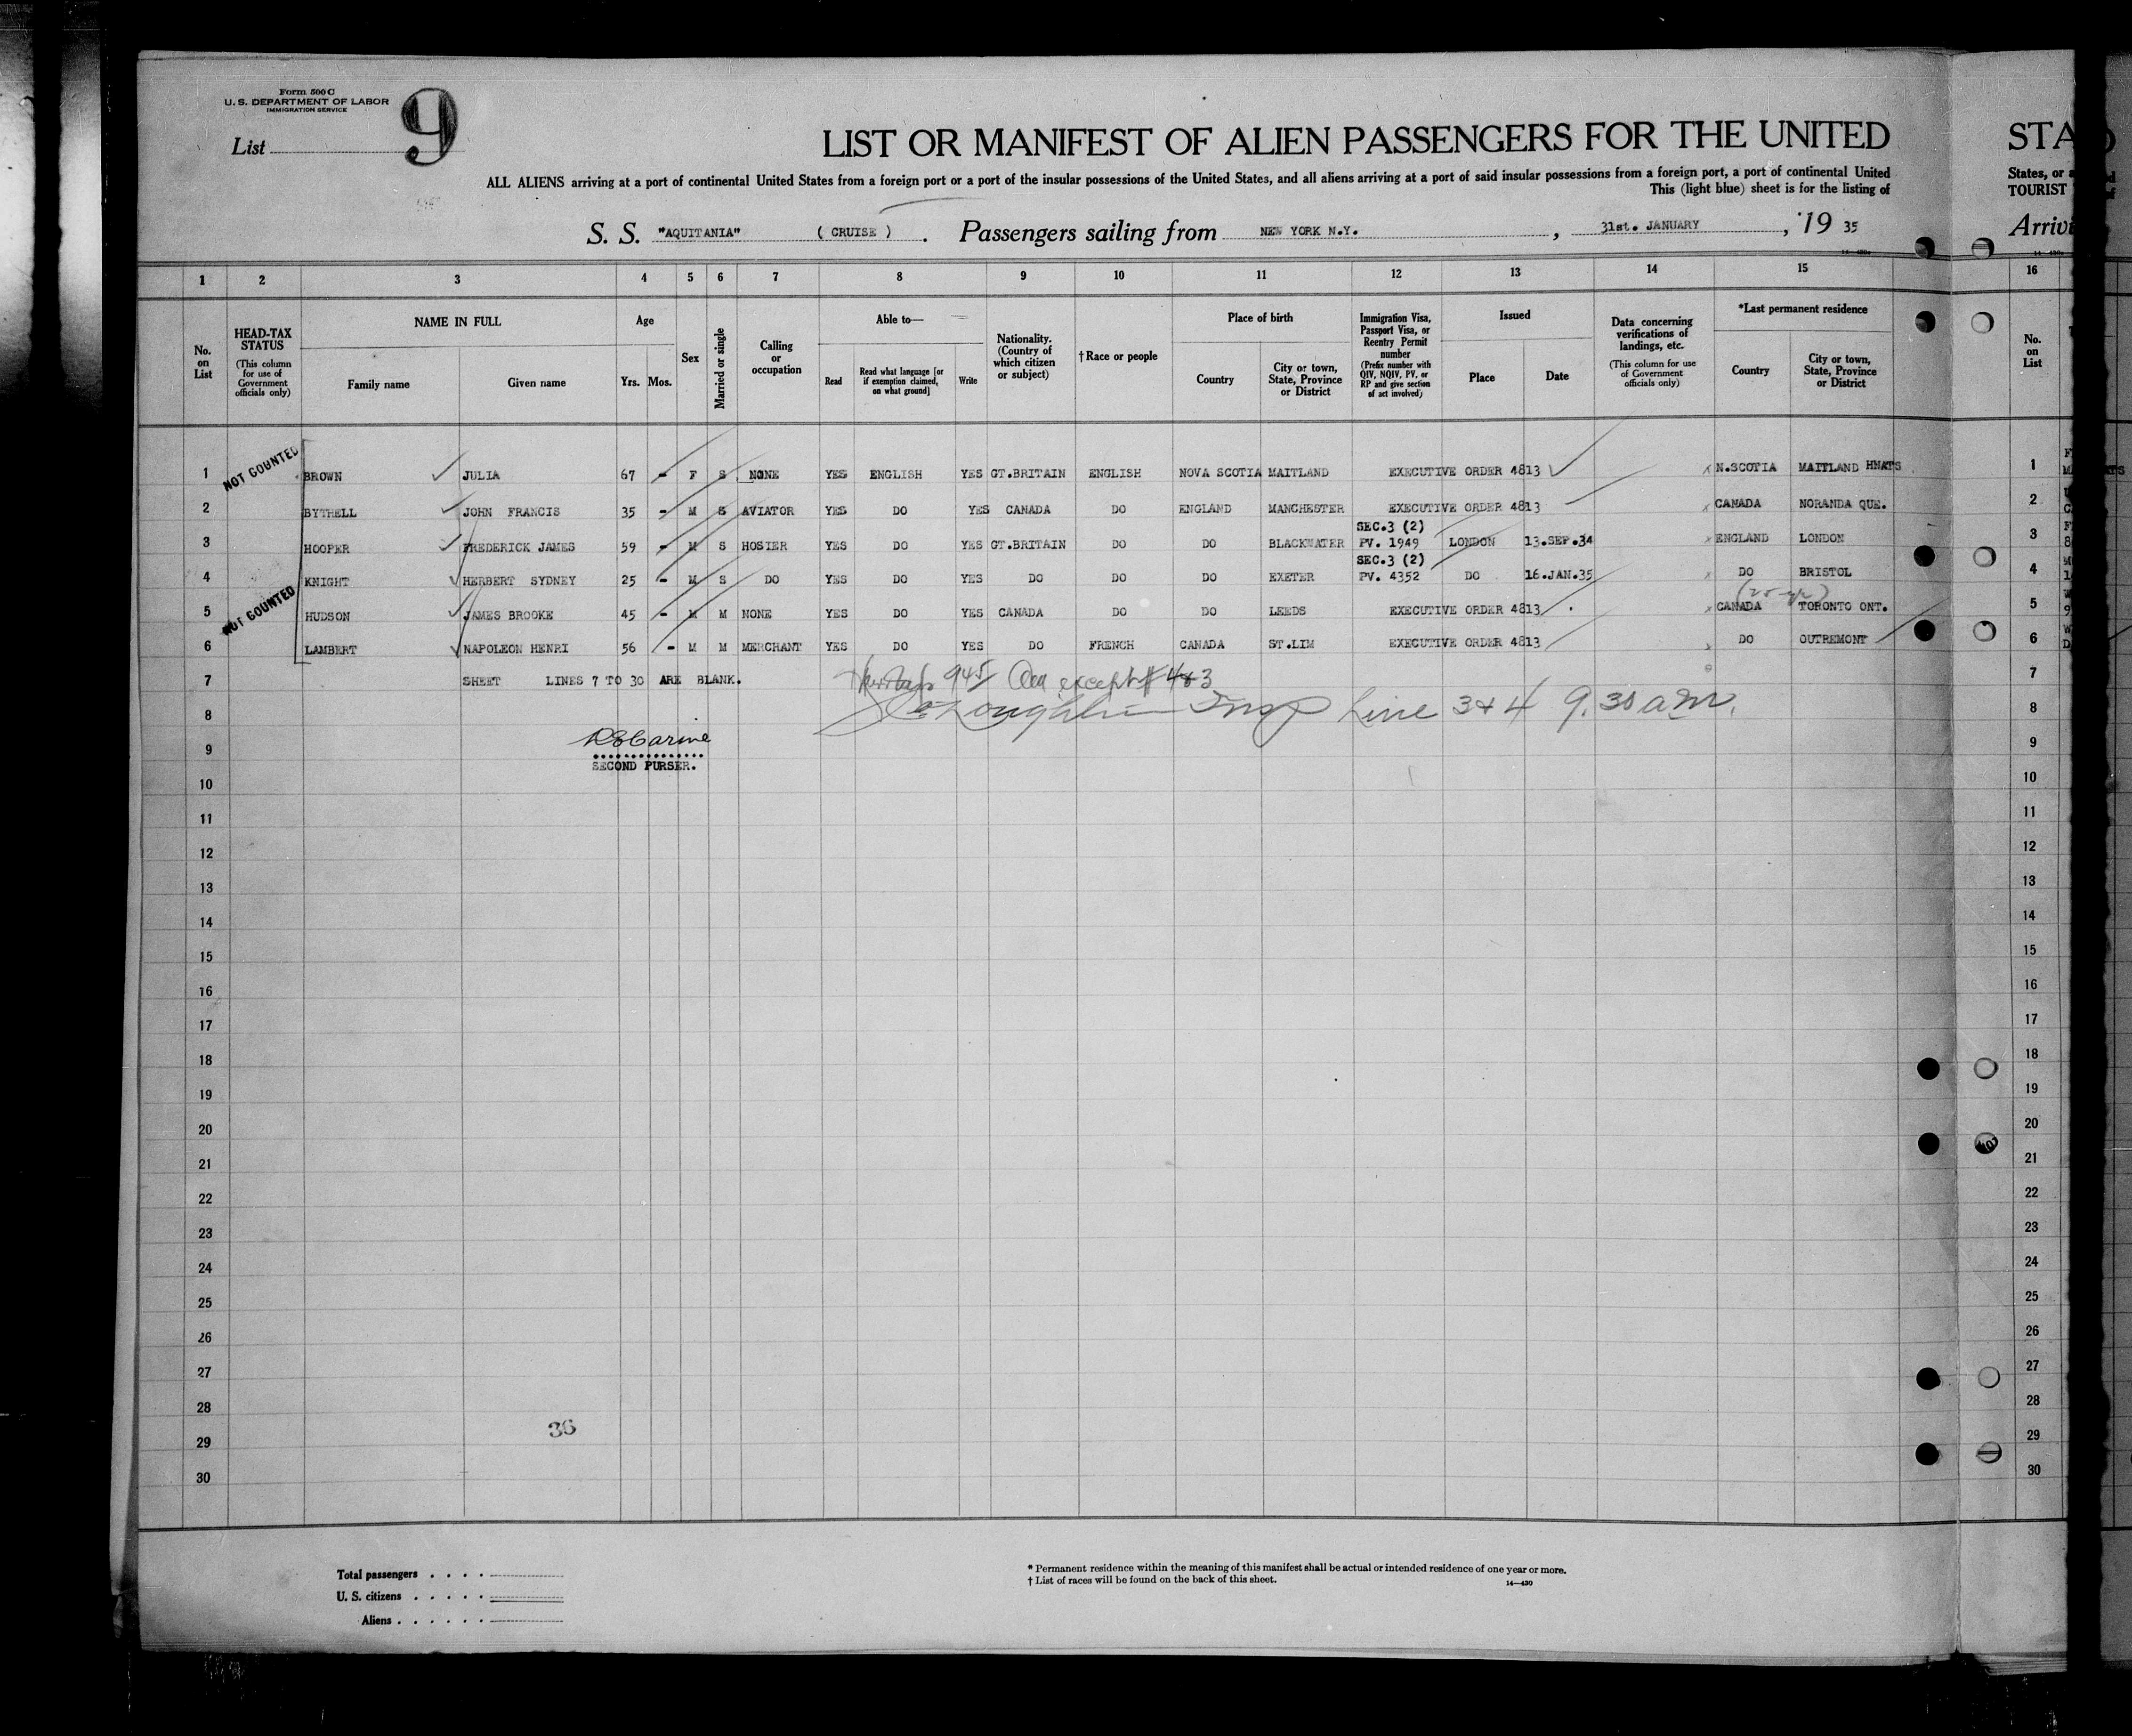 Form 500 C
U. S. DEPARTMENT OF LABOR
IMMIGRATION SERVICE
List 9
LIST OR MANIFEST OF ALIEN PASSENGERS FOR THE UNITED STA
ALL ALIENS arriving at a port of continental United States from a foreign port or a port of the insular possessions of the United States, and all aliens arriving at a port of said insular possessions from a foreign port, a port of continental United States, or a
This (light blue) sheet is for the listing of TOURIST
S. S. "AQUITANIA" ( CRUISE ) . Passengers sailing from NEW YORK N.Y. , 31st. JANUARY , 19 35 Arrivi
1 2 3 4 5 6 7 8 9 10 11 12 13 14 15 16
No. on List
HEAD-TAX STATUS (This column for use of Government officials only)
NAME IN FULL
Family name Given name
Age
Yrs. Mos.
Sex
Married or single
Calling or occupation
Able to—
Read Read what language [or if exemption claimed, on what ground] Write
Nationality. (Country of which citizen or subject)
† Race or people
Place of birth
Country City or town, State, Province or District
Immigration Visa, Passport Visa, or Reentry Permit number (Prefix number with QIV, NQIV, PV, or RP and give section of act involved)
Issued
Place Date
Data concerning verifications of landings, etc. (This column for use of Government officials only)
*Last permanent residence
Country City or town, State, Province or District
No. on List
NOT COUNTED
1 BROWN JULIA 67 - F S NONE YES ENGLISH YES GT.BRITAIN ENGLISH NOVA SCOTIA MAITLAND EXECUTIVE ORDER 4813 N.SCOTIA MAITLAND HHATS 1
2 BYTHELL JOHN FRANCIS 35 - M S AVIATOR YES DO YES CANADA DO ENGLAND MANCHESTER EXECUTIVE ORDER 4813 CANADA NORANDA QUE. 2
SEC.3 (2)
3 HOOPER FREDERICK JAMES 59 - M S HOSIER YES DO YES GT.BRITAIN DO DO BLACKWATER PV. 1949 LONDON 13.SEP.34 ENGLAND LONDON 3
SEC.3 (2)
4 KNIGHT HERBERT SYDNEY 25 - M S DO YES DO YES DO DO DO EXETER PV. 4352 DO 16.JAN.35 DO BRISTOL 4
NOT COUNTED
5 HUDSON JAMES BROOKE 45 - M M NONE YES DO YES CANADA DO DO LEEDS EXECUTIVE ORDER 4813 CANADA TORONTO ONT. 5
6 LAMBERT NAPOLEON HENRI 56 - M M MERCHANT YES DO YES DO FRENCH CANADA ST.LIM EXECUTIVE ORDER 4813 DO OUTREMONT 6
7 SHEET LINES 7 TO 30 ARE BLANK. 945 All except # 4 & 3 7
8 Insp Line 3 & 4 9.30 a.m. 8
9 9
SECOND PURSER.
10 10
11 11
12 12
13 13
14 14
15 15
16 16
17 17
18 18
19 19
20 20
21 21
22 22
23 23
24 24
25 25
26 26
27 27
28 28
36
29 29
30 30
Total passengers . . . .
U. S. citizens . . . . .
Aliens . . . . . .
* Permanent residence within the meaning of this manifest shall be actual or intended residence of one year or more.
† List of races will be found on the back of this sheet.
14—430